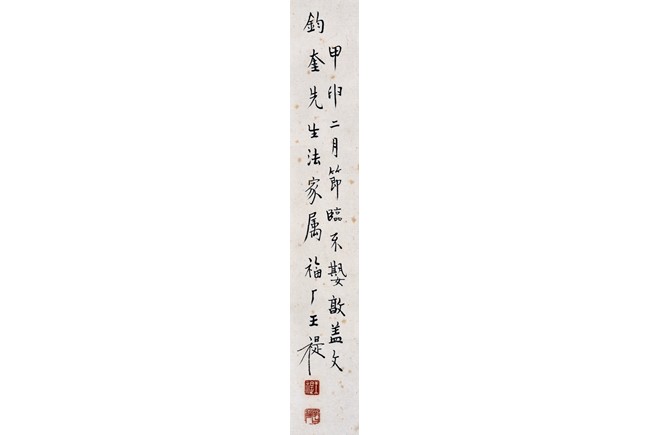 甲申二月節臨不𡢁敦蓋文
鈞奎先生法家属 福厂王禔